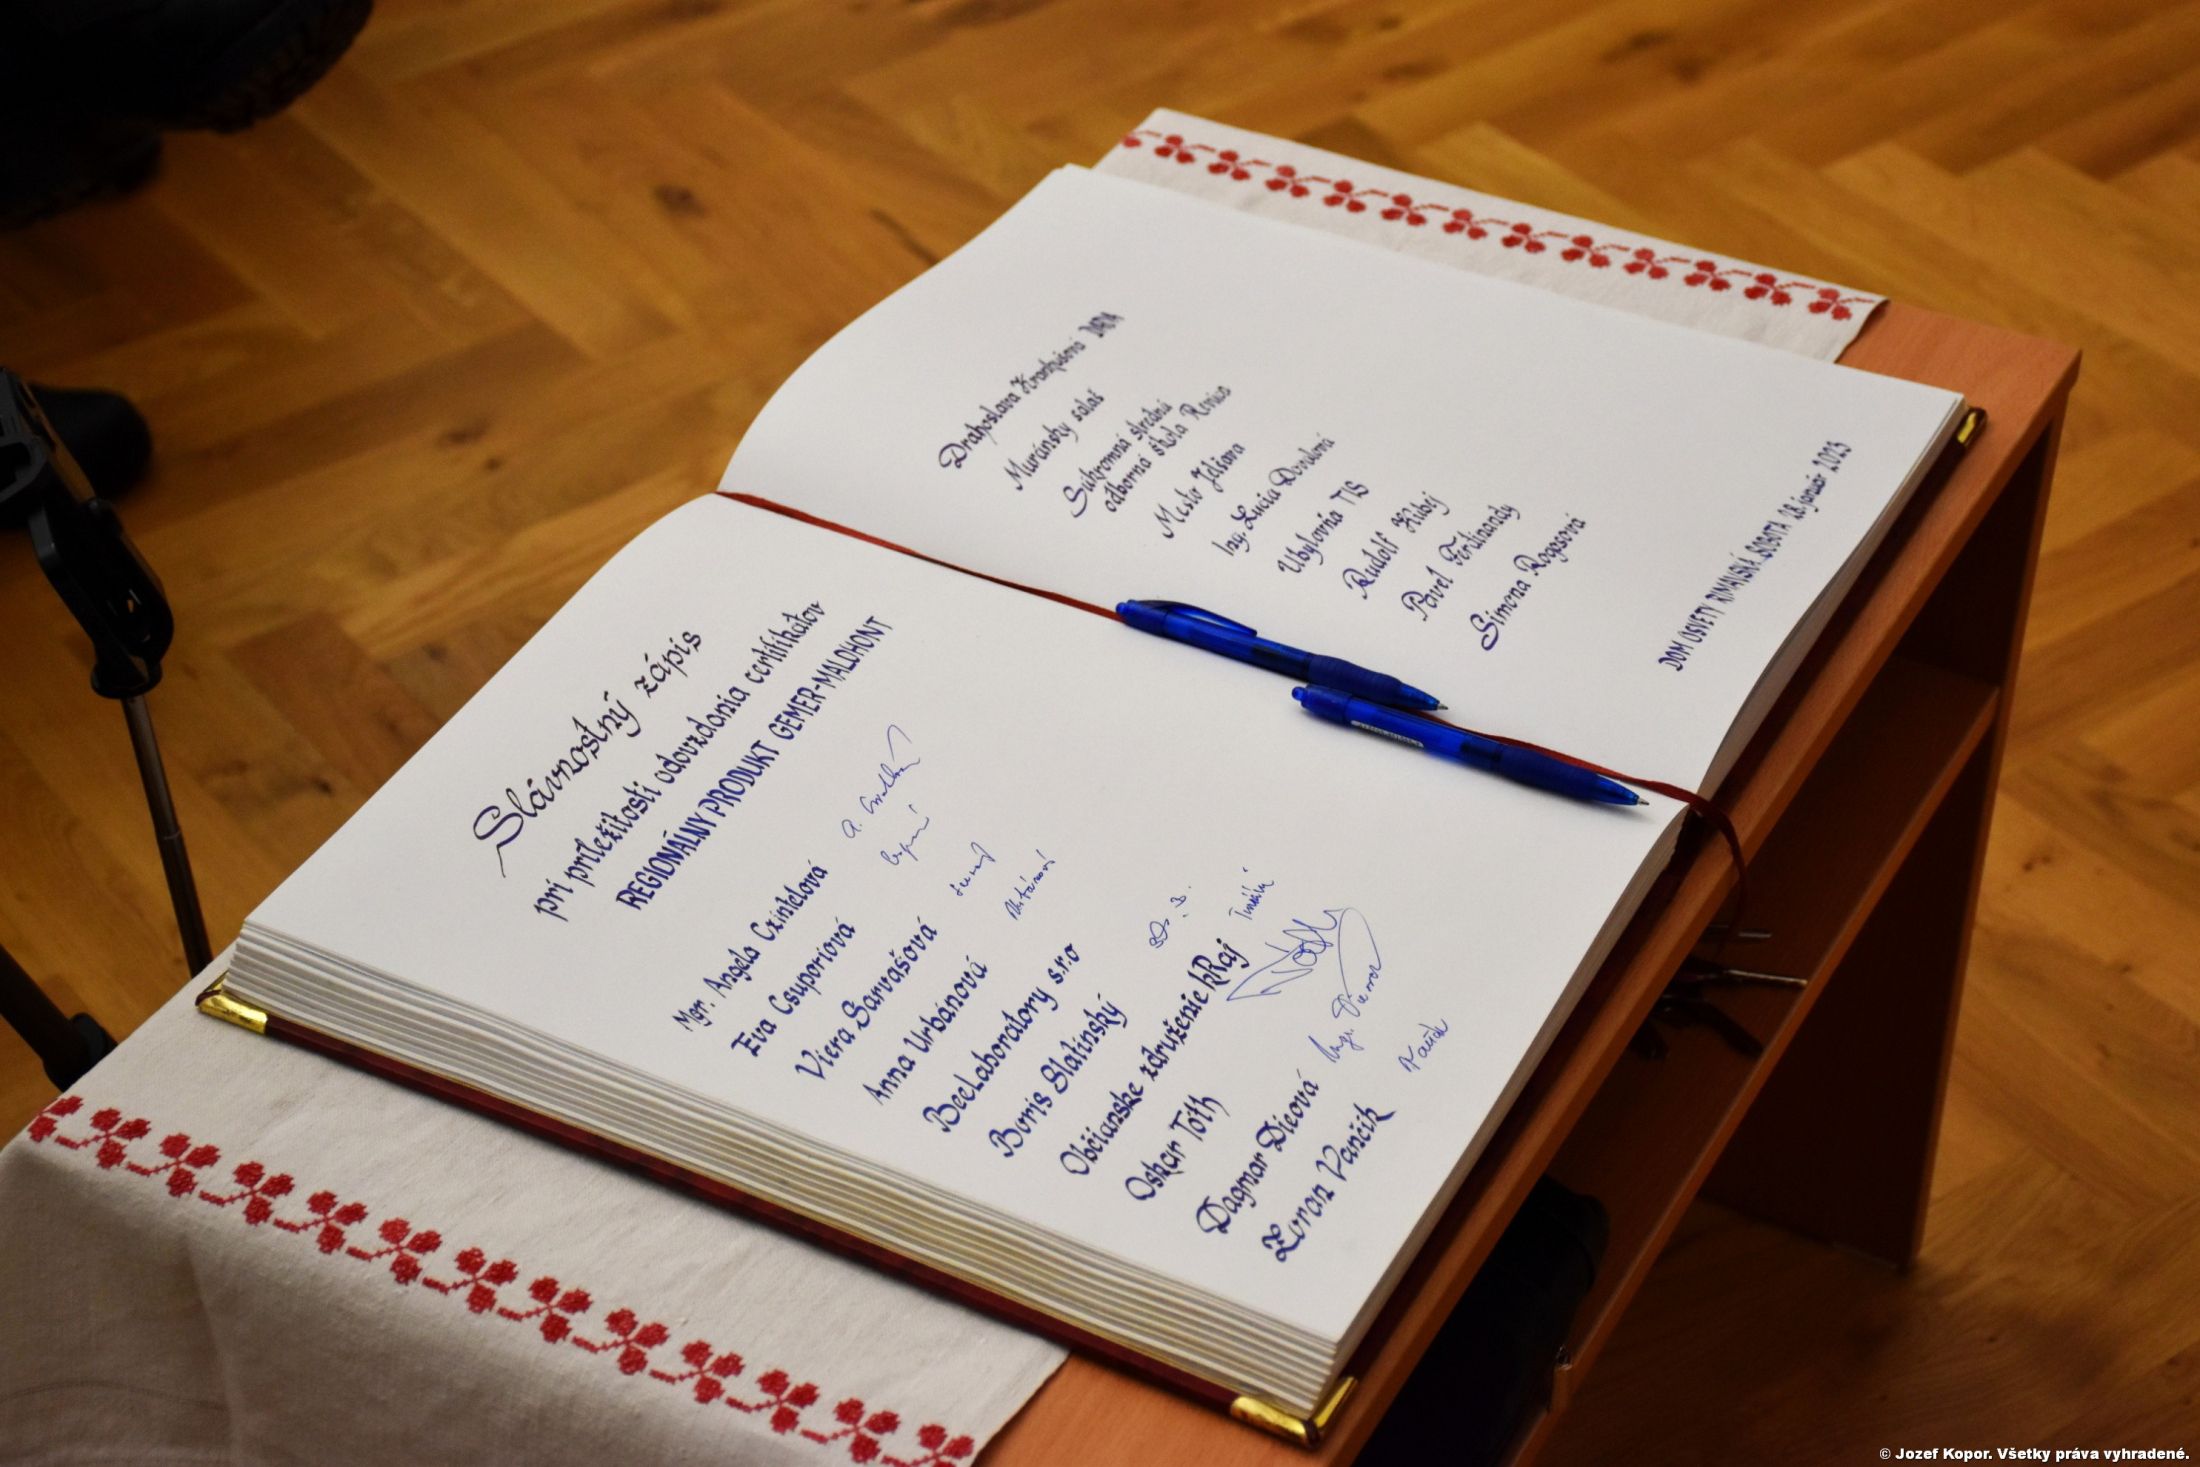 Slávnostný zápis
pri príležitosti odovzdania certifikátov
REGIONÁLNY PRODUKT GEMER-MALOHONT
Mgr. Angela Czintelová
Eva Csuporiová
Viera Sarvašová
Anna Urbánová
BeeLaboratory s.r.o
Boris Slatinský
Občianske združenie kRaj
Oskar Tóth
Dagmar Dicová
Zoran Pančík
Drahoslava
Muránsky salaš
Súkromná stredná
odborná škola Revúca
Mesto Jelšava
Ing. Lucia
Ubytovňa TIS
Rudolf
Pavel Ferdinandy
Simona Rogosová
DOM OSVETY RIMAVSKÁ SOBOTA 18. január 2023
© Jozef Kopor. Všetky práva vyhradené.